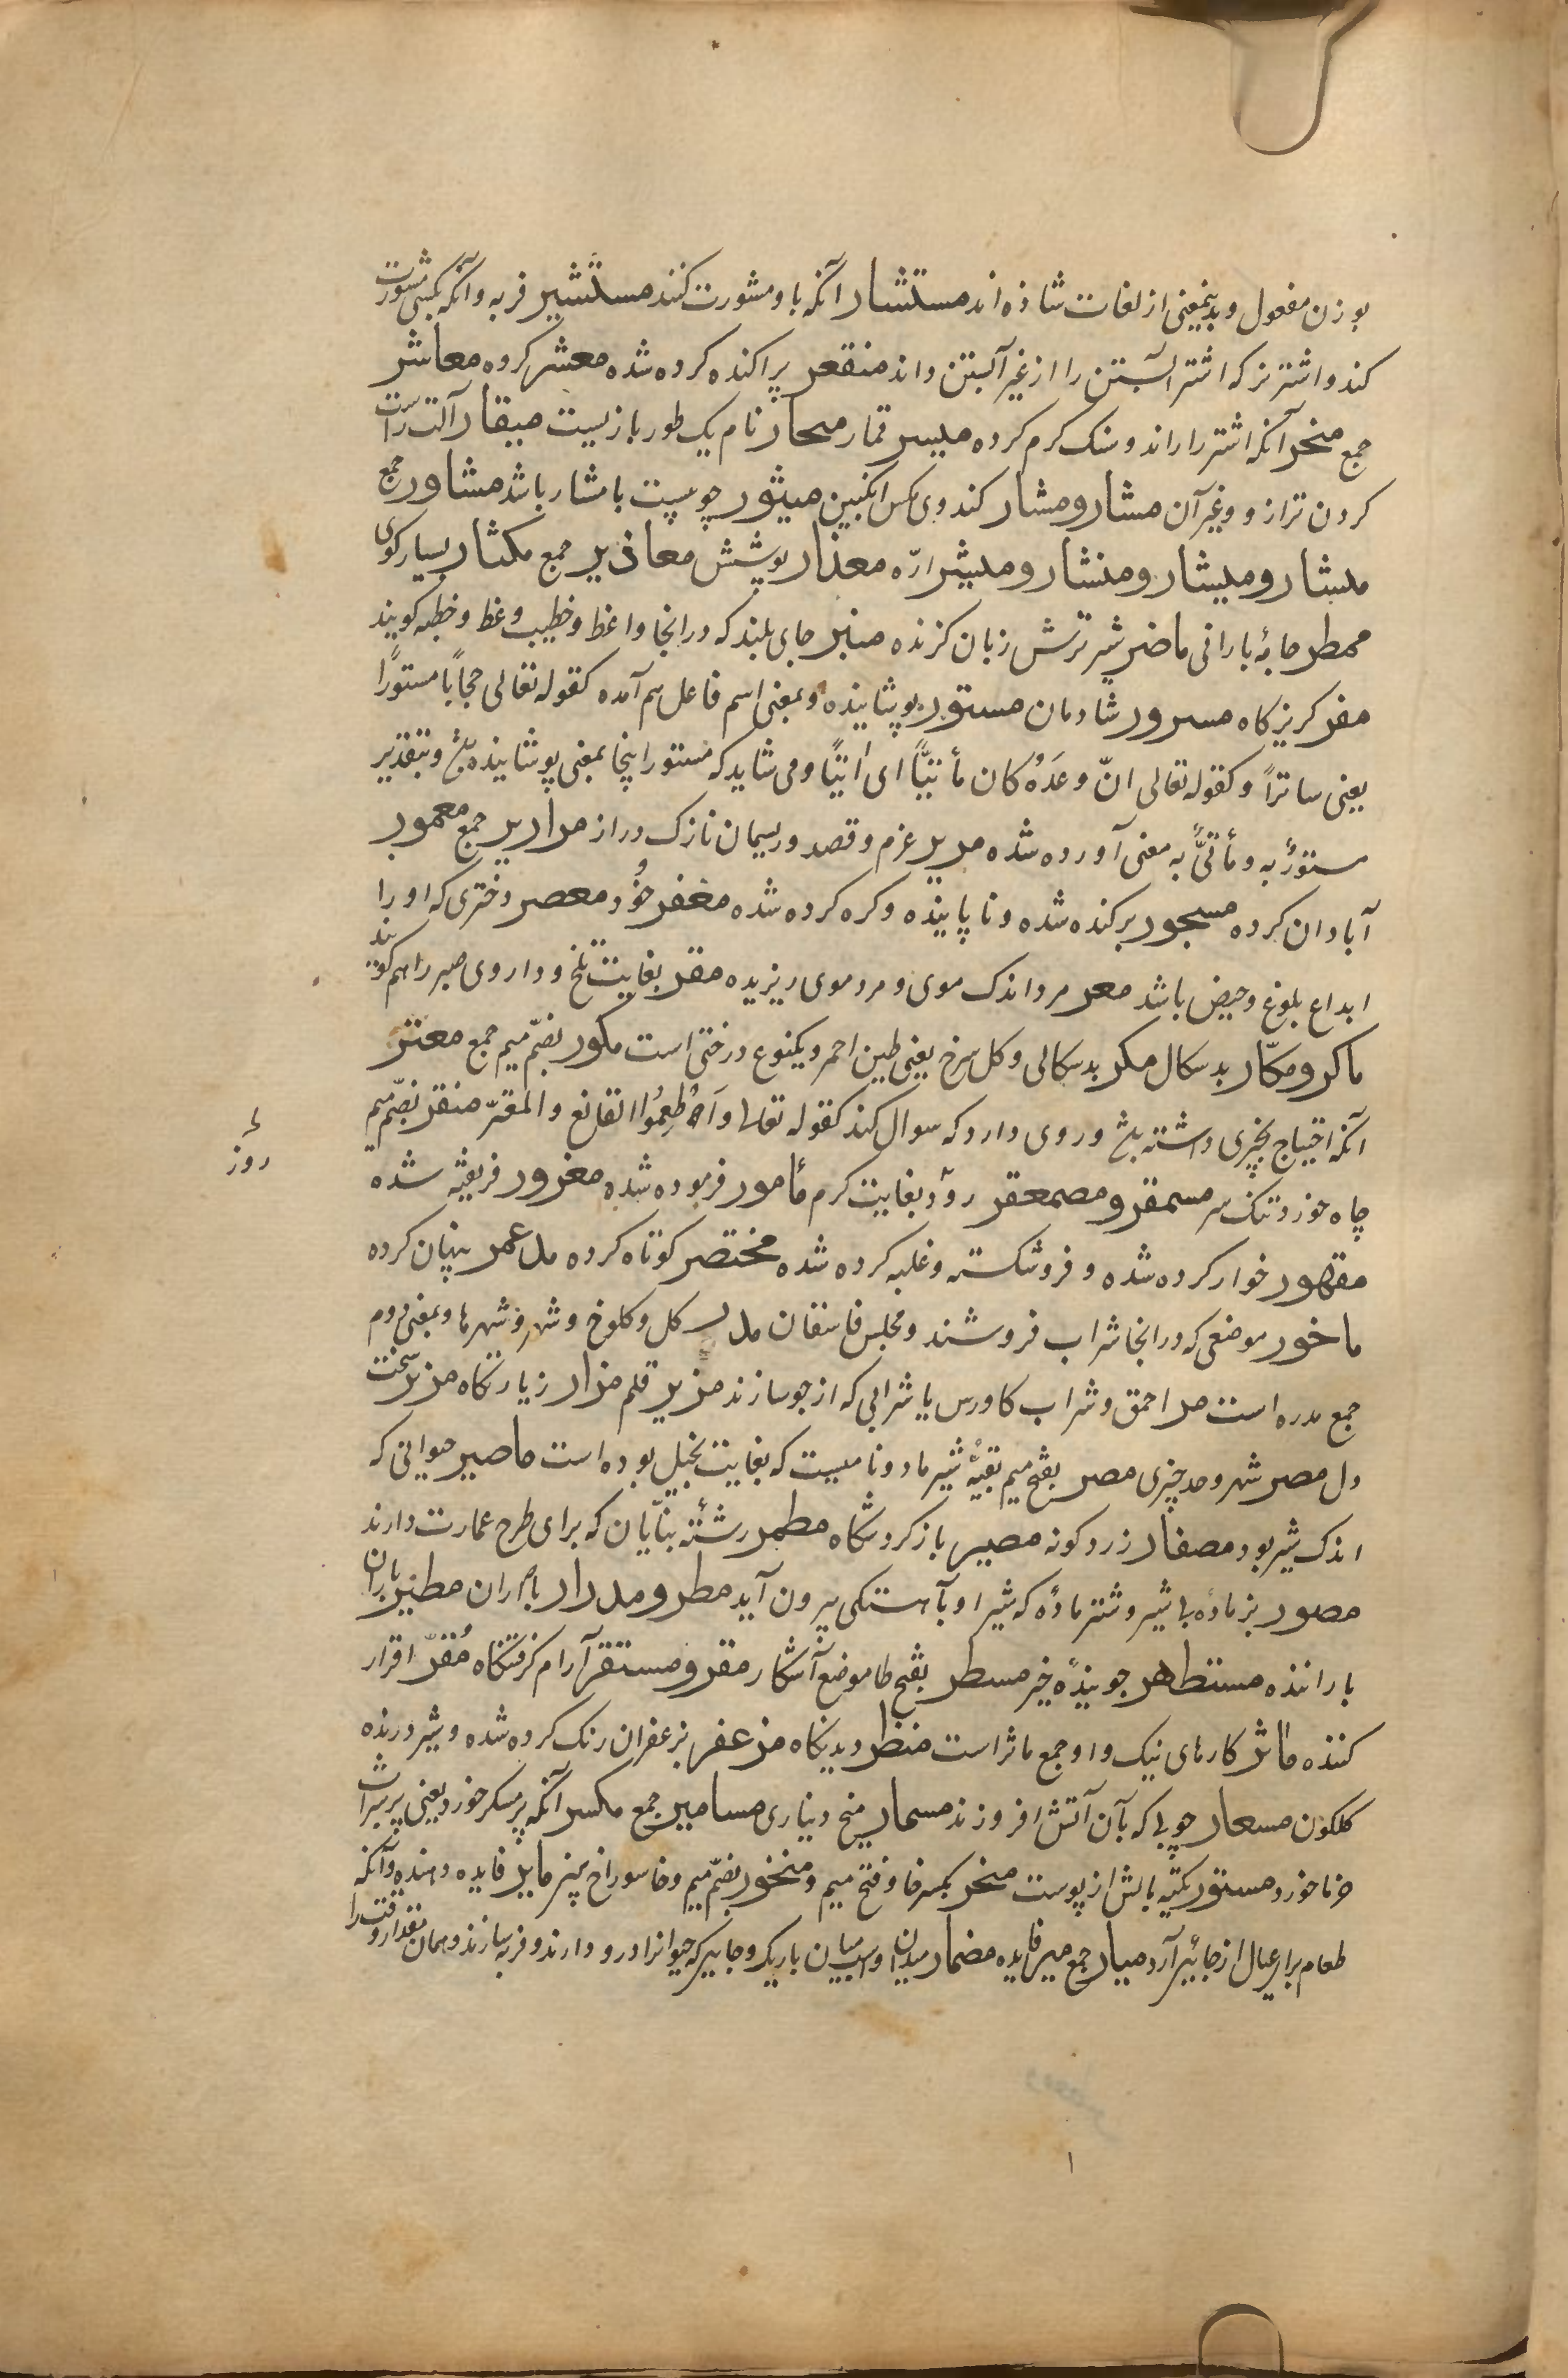 بوزن مفعول و بدینمعنی از لغات شاذه اند مستشار آنکه باو مشورت کنند مستشیر فربه و آنکه بکسی مشورت
کند و اشتر نر که اشتر آبستن را از غیر آبستن داند منقعر پراکنده کرده شده معشر کروه معاشر
جمع منحر آنکه اشتر را راند و سنک کرم کرده میسر قمار محار نام یک طور بازیست میقار آلت راست
کردن ترازو و غیر آن مشار و مشار کندوی مکس انکبین میثور چو پیست با مشار باشد مشاور جمع
مئشار و میشار و منشار و میشر ارّه معذار پوشش معاذیر جمع مکثار بسیار کوی
ممطر جامهٔ بارانی ماضر شیر ترش زبان کزنده منبر جای بلند که در انجا واعظ و خطیب وعظ و خطبه کویند
مفر کریزکاه مسرور شادمان مستور پوشانیده و بمعنی اسم فاعل هم آمده کقوله تعالی حجاباً مستوراً
یعنی ساتراً و کقوله تعالی انّ وعدُهُ کان مأتیّاً ای اٰتیاً و می شاید که مستور اینجا بمعنی پوشانیده باشد و بتقدیر
مستورٌ به و مأتیٌّ به معنی آورده شده مریر عزم و قصد و ریسمان نازک دراز مرایر جمع معمور
آبادان کرده مسجور برکنده شده و ناپاینده و کره کرده شده مغفر خُود معصر دختری که او را
ابداع بلوغ و حیض باشد معر مرد اندک موی و مرد موی ریزیده مقر بغایت تلخ و داروی صبر را هم کویند
ماکر و مکّار بدسکال مکر بدسکالی و کل سرخ یعنی طین احمر و یکنوع درختی است مکور بضمّ میم جمع معتر
آنکه احتیاج بچیزی داشته باشد و روی دارد که سوال کند کقوله تعالی و اَطْعِمُوا القانع و المعترّ منقر بضمّ میم
چاه خورد تنک سر مسمقر و مصمعقر روز بغایت کرم مأمور فرموده شده مغرور فریفته شده
مقهور خوار کرده شده و فروشکسته و غلبه کرده شده مختصر کوتاه کرده مدغمر پنهان کرده
ماخور موضعی که در انجا شراب فروشند و مجلس فاسقان مدر کل و کلوخ و شهر و شهرها و بمعنی دوم
جمع مدره است مدر احمق و شراب کاورس یا شرابی که از جو سازند مزبر قلم مزار زیارتکاه مزیر سخت
دل مصر شهر و حد چیزی مصر بفتح میم بقیهٔ شیر مادر و نامیست که بغایت بخیل بوده است ماصیر حیوانی که
اندک شیر بود مصفار زرد کونه مصیر بازکردشکاه مطمر رشتهٔ بنّایان که برای طرح عمارت دارند
مصور بز مادهٔ بی شیر و شتر مادهٔ که شیر او بآهستکی بیرون آید مطر و مدرار باران مطیر باران
باراننده مستظهر جویندهٔ خیر مسطر بفتح طا موضع آشکار مقر و مستقر آرام کرفتکاه مُقرّ اقرار
کننده مآثر کارهای نیک و او جمع ماثر است منظر دیدنکاه مزعفر بزعفران رنک کرده شده و شیر درنده
کلکون مسعار چوبی که بآن آتش افروزند مسمار میخ دیناری مسامیر جمع مکسر آنکه پر مسکر خورد یعنی پر شراب
خرما خورد مستور تکیه بالش از پوست منخر بکسر خا و فتح میم و منخور بضمّ میم و خا سوراخ بینی مایر فایده دهنده و آنکه
طعام برای عیال از جائی آرد میار جمع میر فایده مضمار میدان اسب میان باریک و جاییکه حیوان را درو دارند و فربه سازند و همان مقدار وقت را
روز
۱